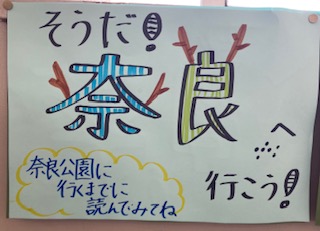 そうだ!
奈良へ
行こう!
奈良公園に
行くまでに
読んでみてね